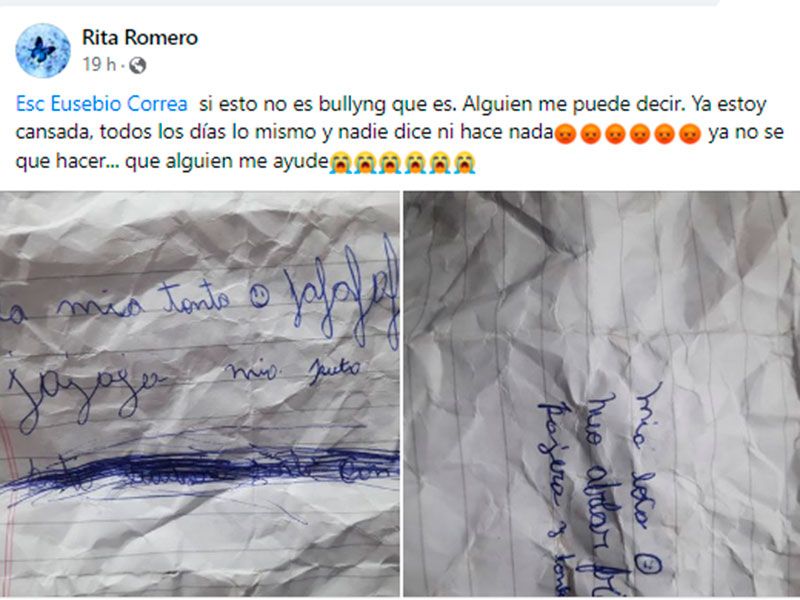 Rita Romero
19 h ·
Esc Eusebio Correa si esto no es bullyng que es. Alguien me puede decir. Ya estoy
cansada, todos los días lo mismo y nadie dice ni hace nada😡😡😡😡😡😡 ya no se
que hacer... que alguien me ayude😭😭😭😭😭😭
mia tonto jajajaj
jajaja mia puta
mia loca
mia
pajera y